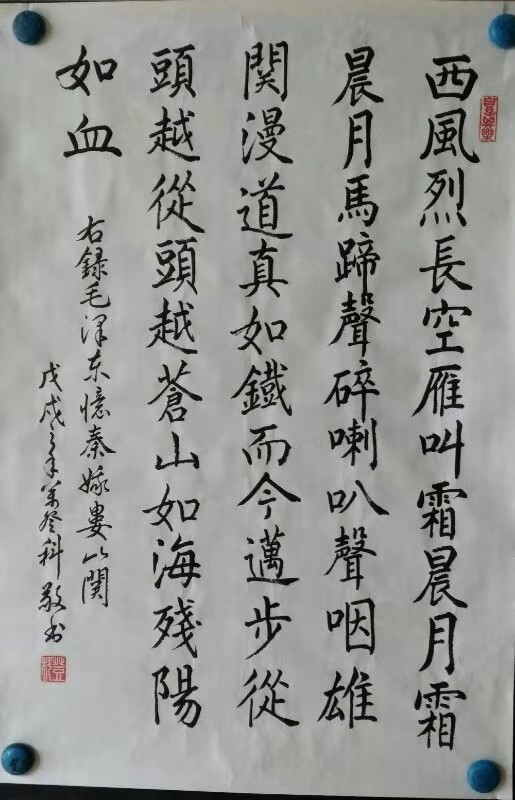 西風烈長空雁叫霜晨月霜
晨月馬蹄聲碎喇叭聲咽雄
関漫道真如鐵而今邁步從
頭越從頭越蒼山如海殘陽
如血
右録毛泽东憶秦娥婁山関
戊戌之年 登科敬书